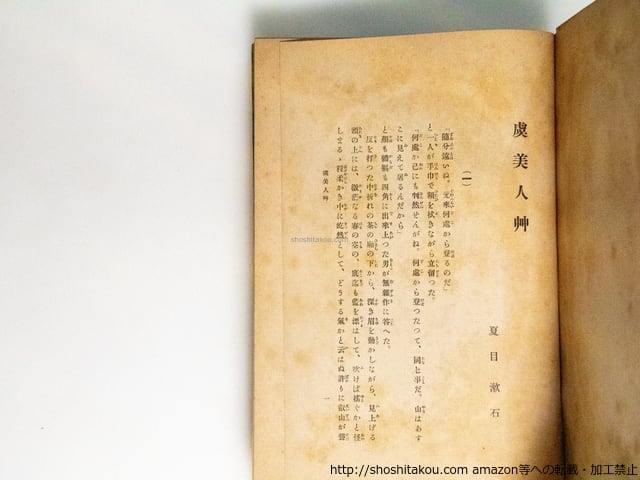 虞美人艸
夏目漱石
(一)
「隨分遠いね。元來何處から登るのだ」
と一人が手巾で額を拭きながら立留つた。
「何處か己にも判然せんがね。何處から登つたつて、同じ事だ。山はあす
こに見えて居るんだから」
と顏も體軀も四角に出來上つた男が無雜作に答へた。
反を打つた中折れの茶の廂の下から、深き眉を動かしながら、見上げる
頭の上には、微茫なる春の空の、底迄も藍を漂はして、吹けば搖くかと怪
しまるゝ程柔かき中に屹然として、どうする氣かと云はぬ許りに叡山が聳
虞美人艸
一
shoshitakou.com
http://shoshitakou.com amazon等への転載・加工禁止